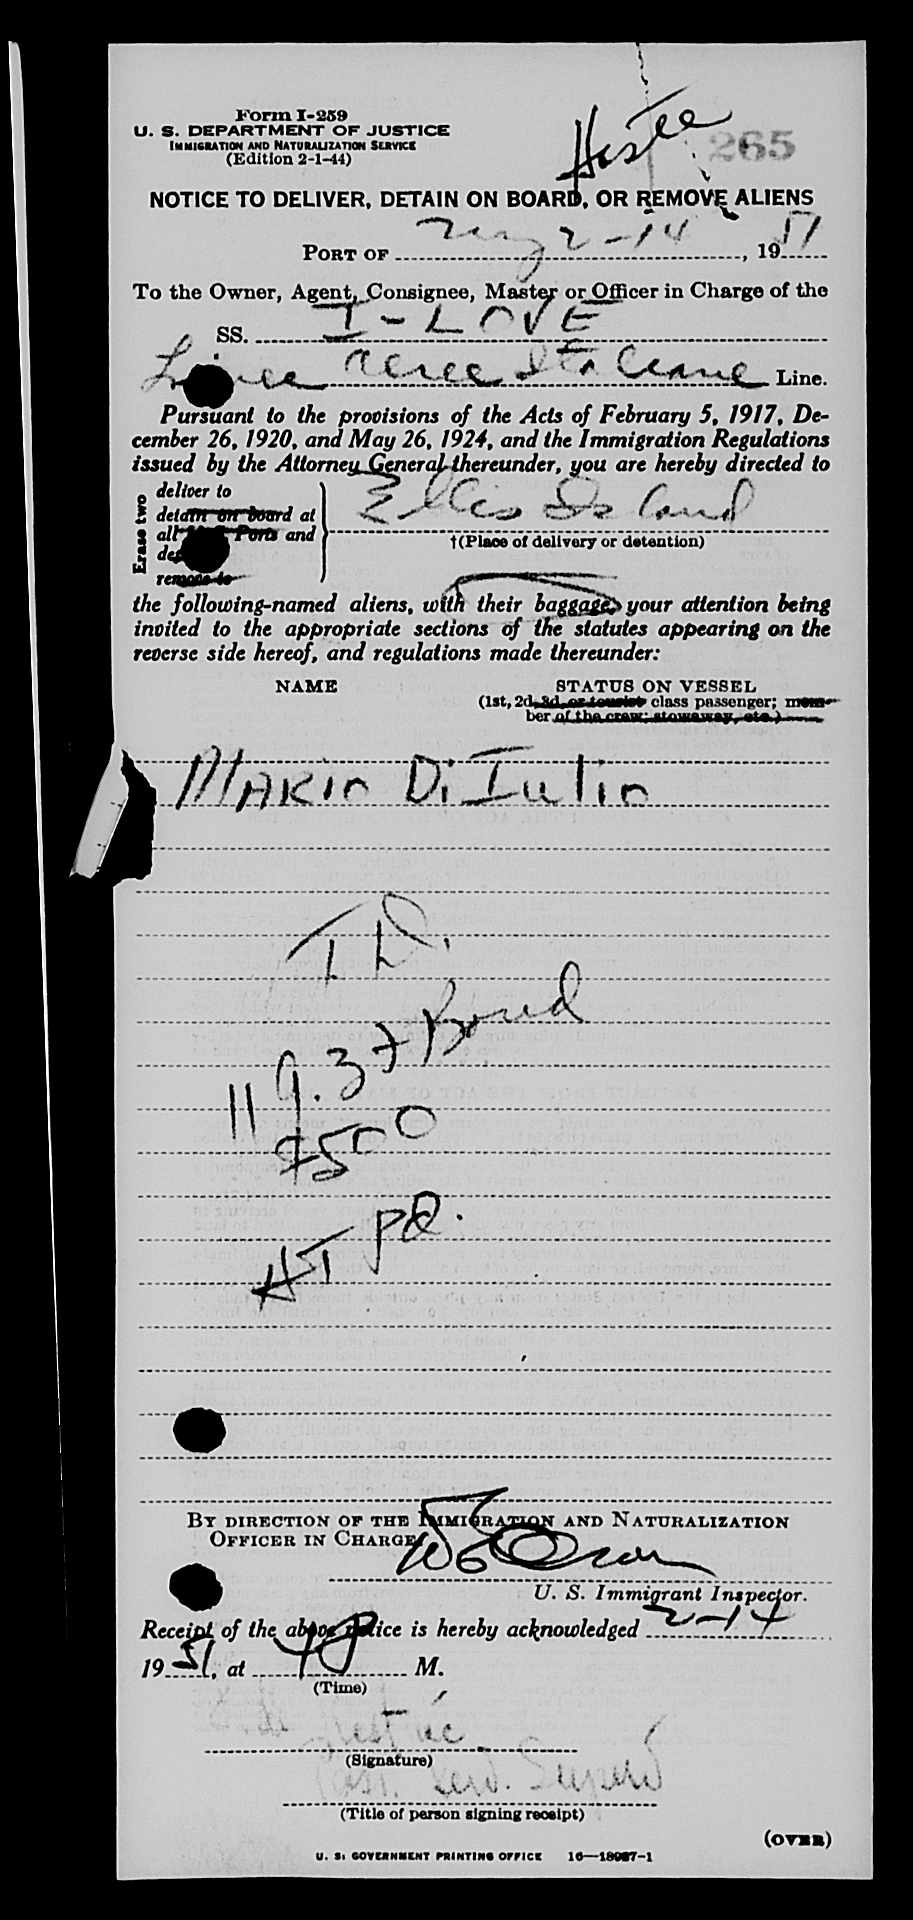 Form I-259
U. S. DEPARTMENT OF JUSTICE
IMMIGRATION AND NATURALIZATION SERVICE
(Edition 2-1-44)
265
NOTICE TO DELIVER, DETAIN ON BOARD, OR REMOVE ALIENS
PORT OF NY 2-14, 1951
To the Owner, Agent, Consignee, Master or Officer in Charge of the
SS. I-LOVE
Linee Aeree Italiane Line.
Pursuant to the provisions of the Acts of February 5, 1917, De-
cember 26, 1920, and May 26, 1924, and the Immigration Regulations
issued by the Attorney General thereunder, you are hereby directed to
Erase two
deliver to
detain on board at
all Ports and
remove to
Ellis Island
†(Place of delivery or detention)
the following-named aliens, with their baggage, your attention being
invited to the appropriate sections of the statutes appearing on the
reverse side hereof, and regulations made thereunder:
NAME
STATUS ON VESSEL
(1st, 2d, 3d, or tourist class passenger; mem-
ber of the crew; stowaway, etc.)
MARIO Di Iulio
T D.
119.3 + Bond
$500
HT pd.
BY DIRECTION OF THE IMMIGRATION AND NATURALIZATION
OFFICER IN CHARGE
U. S. Immigrant Inspector.
Receipt of the above notice is hereby acknowledged 2-14
1951, at 4P M.
(Time)
(Signature)
(Title of person signing receipt)
(OVER)
U. S. GOVERNMENT PRINTING OFFICE 16—18987-1